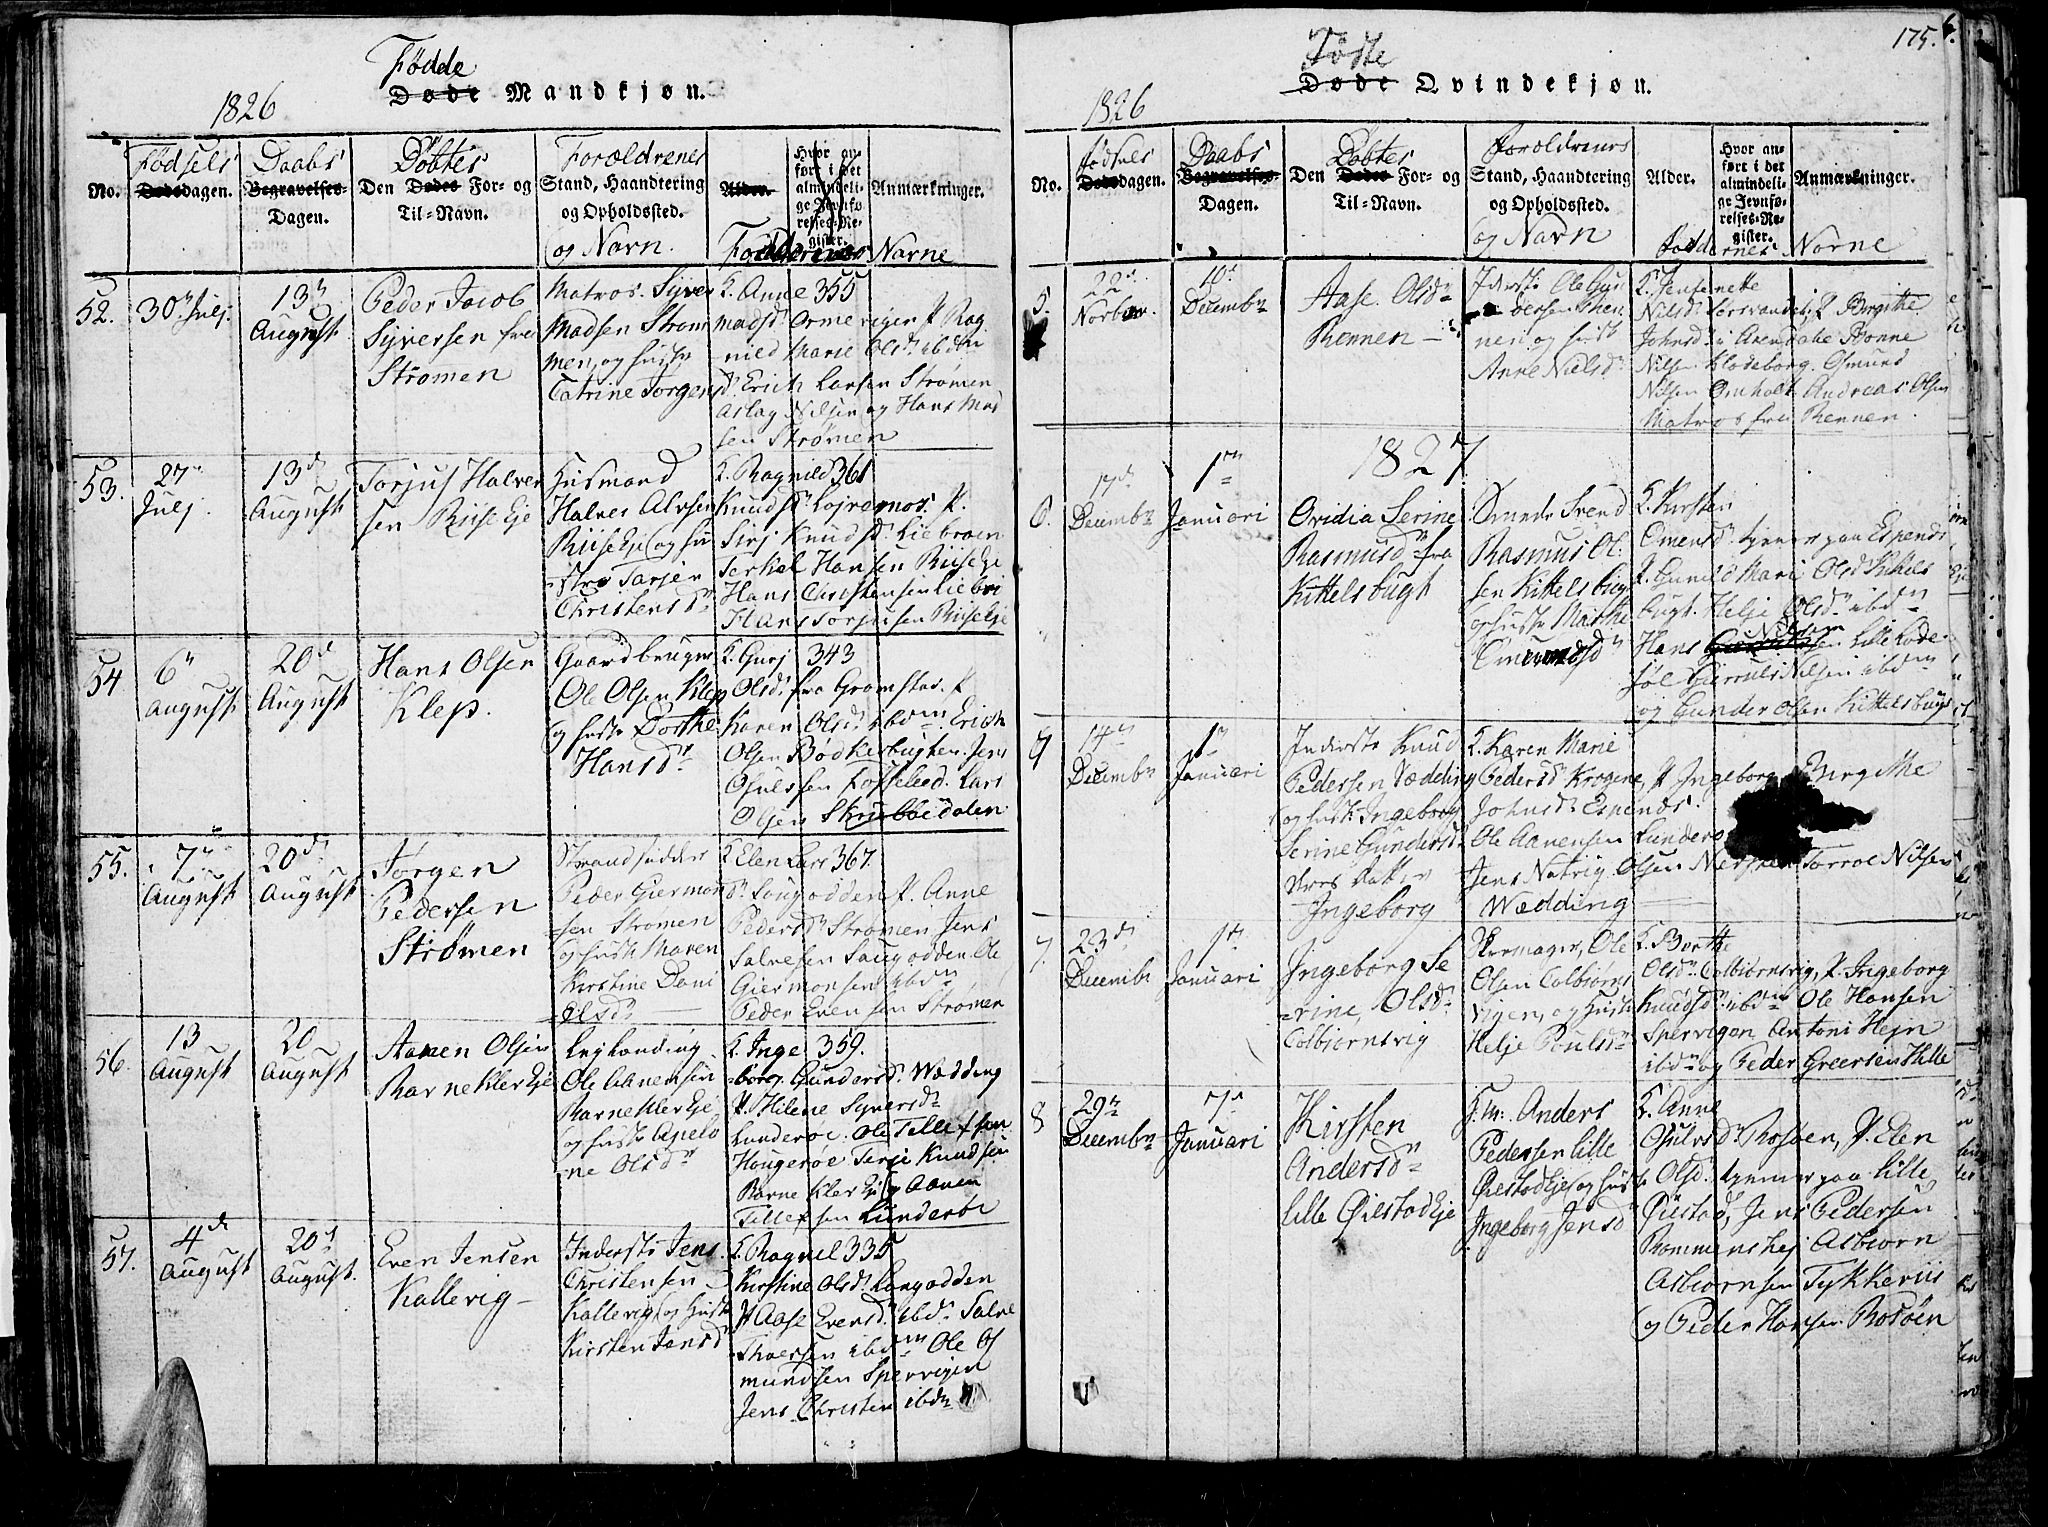 Fødde
Døde Mandkjøn.
1826
No.
Fødsels
Dødsdagen.
Daabs
Begravelses-
Dagen.
Døbtes
Den Dødes For- og
Til-Navn.
Forældrenes
Stand, Haandtering
og Opholdssted.
og Navn.
Alder.
Hvor an-
ført i det
almindeli-
ge Jevnfø-
relses-Re-
gister.
Anmærkninger.
Faddernes Navne
52.
30n Julj.
13n
August
Peder Jacob
Syversen fra
Strømen
Matros. Syver
Madsen Strøm
men, og hustr
Catrine Jørgens
K. Anne 355
Madsd. Ormevigen P. Rag
nild Marie Olsd. ibdm
Erich Larsen Strømen
Aslag Nilsen og Hans Mad
sen Strømen
53.
27n
Julj
13d
August
Torjus Halver
sen Riise Eje
Husmand
Halver Alvsen
Riise Eje og hu
stro Tarjer
Christensdr
K. Ragnild 361
Knudsdr Løjvemos. P.
Sirj Knudsd. Liebroen
Terkel Hansen Riise Eje
Hans Christensen Liebri
Hans Torjusen Riise Eje
54
6n
August
20d
August
Hans Olsen
Klep.
Gaardbruger
Ole Olsen Klep
og hustr Dorthe
Hansdr
K. Gurj 343
Olsd. fra Gromstad. P.
Karen Olsd. ibdm Erich
Olsen Bødkerbugten. Jens
Osulssen Fosseleed. Lars
Olsen Skrubbedalen
55.
7n
August
20d
August
Jørgen
Pedersen
Strømen
Strandsidder
Peder Giermon
sen Strømen
og hustr Maren
Kirstine Dani
elsdr
K. Elen Lars 367.
dr Lougodden P. Anne
Pedersdr Strømen Jens
Salvesen Saugodden Ole
Giermonsen ibdm
Peder Evensen Strømen
56.
13
August
20
August
Aanen Olsen
Barnekler Eje
Leylænding
Ole Aanensen
Barnekler Eje
og hustr Apelo
ne Olsdr
K. Inge 359.
borg Gundersd. Wædding
P. Helene Syversdr
Lunderøe. Ole Tellefsen
Hougerøe Terje Knudsen
Barnekler Eje og Aanen
Tellefsen Lunderøe
57.
4de
August
20d
August.
Even Jensen
Kallevig
Inderste Jens
Christensen
Kallevig og hustr
Kirsten Jensd
K. Ragnil 335
Kirstine Olsd. Langodden
P. Aase Evensd. ibd. Salve
Thoersen ibdm Ole Os
mundsen Spervigen
Jens Christen ibdm
175.
Føste
Døde Qvindekjøn.
1826
No.
Fødsels
Dødsdagen.
Daabs
Begravelses-
Dagen.
Døbtes
Den Dødes For- og
Til-Navn.
Forældrenes
Stand, Haandtering
og Opholdssted.
og Navn
Alder.
Hvor an-
ført i det
almindeli-
ge Jevnfø-
relses-Re-
gister.
Anmærkninger.
Faddernes Navne
5.
22d
Novbr.
10d
Decembr
Aase. Olsdr
Rennen
Inderste Ole Gun
dersen Ren
nen og hustr
Anne Nielsdr
K. Jensenette
Nilsd. Torsvandet, P. Birgithe
Johnsd. i Arendahl Bonne
Nilsen Klodeborg. Osmund
Nilsen Omholt Andreas Olsen
Matros fra Rennen.
1827
6.
17d
Decembr
1n
Januari
Ovidia Serine
Rasmusdr fra
Kittelsbugt
Smede Svend
Rasmus Ol-
sen Kittelsbug
og hustr Marthe
Omundsd
K. Kirsten
Omensd. tjener paa Espends
P. Gunild Mari Olsd Kittels
bugt. Helje Olsd. ibdm
Nilsen
Hans Lille Lade-
søl Gunuls Nilsen ibdm
og Gunder Olsen Kittelsbugt
14n
Decembr
1n
Januari
Inderste Knud
Pedersen Wædding
og hustr Ingeborg
Serine Gundersdr
deres datter
Ingeborg
K. Karen Marie
Pedersdr Krogene, P. Ingeborg Birgithe
Johnsdr Espends.
Ole Aanensen Lunderø
Jens Natvig. Olsen Torroe Nilsen
Wædding
7.
23d
Decembr
1n
Januari
Ingeborg Se
rine, Olsdr
Colbiørnsvig
Skomager, Ole
Olsen Colbiørns
vigen, og hustr
Helje Poulsdr
K. Borthe
Olsdr Colbiørnsvig, P. Ingeborg
Knudsd. ibdm Ole Hansen
Spervigen Antoni Hejn
ibdm og Peder Greersen Hille
8
29n
Decembr
7d
Januari
Kirsten
Andersdr
lille Øiestad Eje
H.M. Anders
Pedersen lille
Øiestad Eje og hust
Ingeborg Jensd
K. Anne
Osulvsdr Rosøen, P. Elen
Olsd. tjener paa lille
Øiestad, Jens Pedersen
Rommenshej Asbiørn
Asbiørnsen Tykkeriis
og Peder Hansen Rosøen